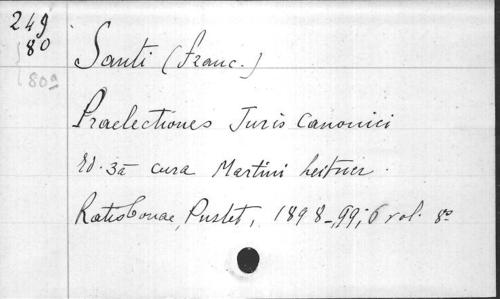 249
80
80a
Santi (Franc.)
Praelectiones Juris Canonici
Ed. 3a cura Martini Leitner.
Ratisbonae, Pustet, 1898-99; 6 vol. 8º